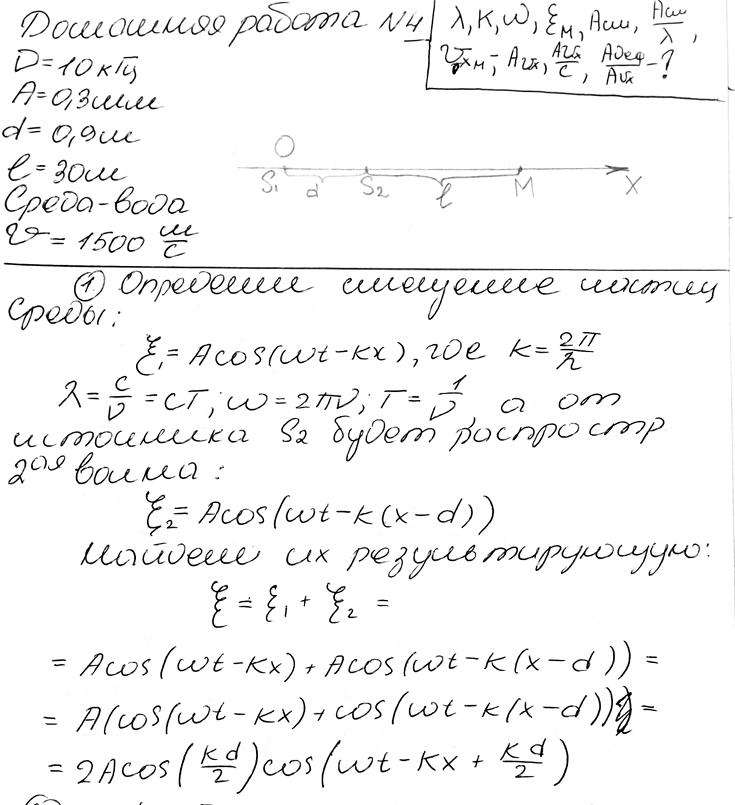 Домашняя работа №4
λ, K, ω, ξм, Aсм, Aсм/λ,
υxм - Aυx, Aυx/c, Aдеф/Aυx - ?
ν = 10 кГц
A = 0,3 мм
d = 0,9 м
ℓ = 30 м
Среда - вода
υ = 1500 м/с
O
S₁ d S₂ ℓ M X
① Определим смещение частиц
Среды:
ξ₁ = A cos(ωt - Kx), где K = 2π/λ
λ = c/ν = cT; ω = 2πν; T = 1/ν, а от
источника S₂ будет распростр
2ая волна:
ξ₂ = A cos(ωt - K(x - d))
Найдем их результирующую:
ξ = ξ₁ + ξ₂ =
= A cos(ωt - Kx) + A cos(ωt - K(x - d)) =
= A(cos(ωt - Kx) + cos(ωt - K(x - d))) =
= 2A cos(Kd/2) cos(ωt - Kx + Kd/2)